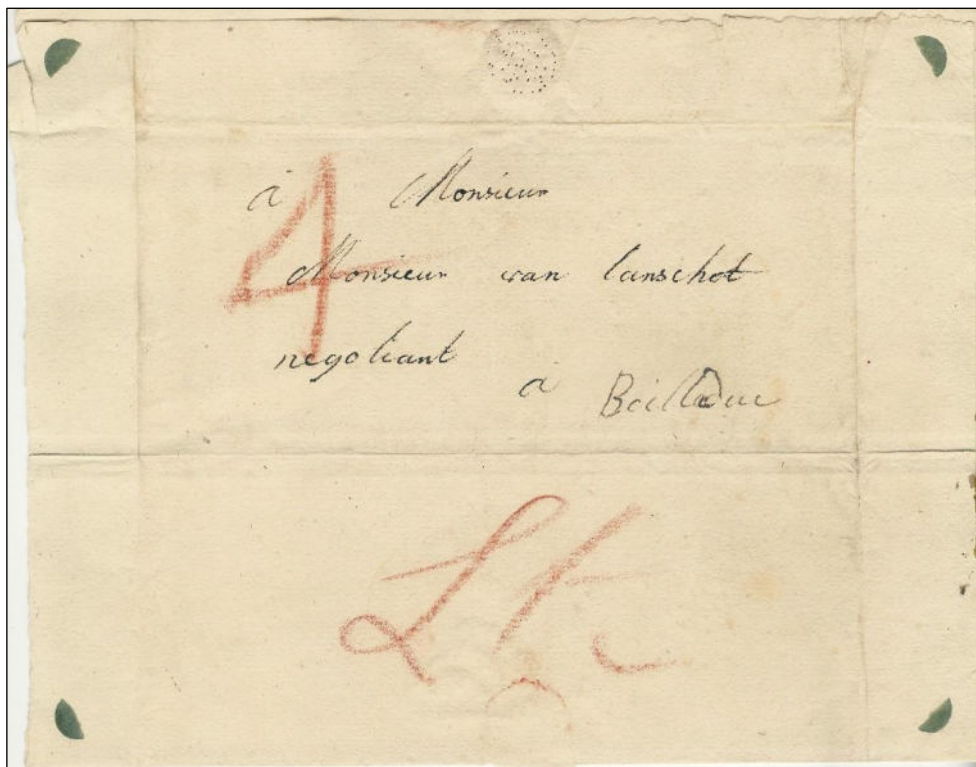 à Monsieur
4
Monsieur van lanschot
negotiant
à Boilleduc